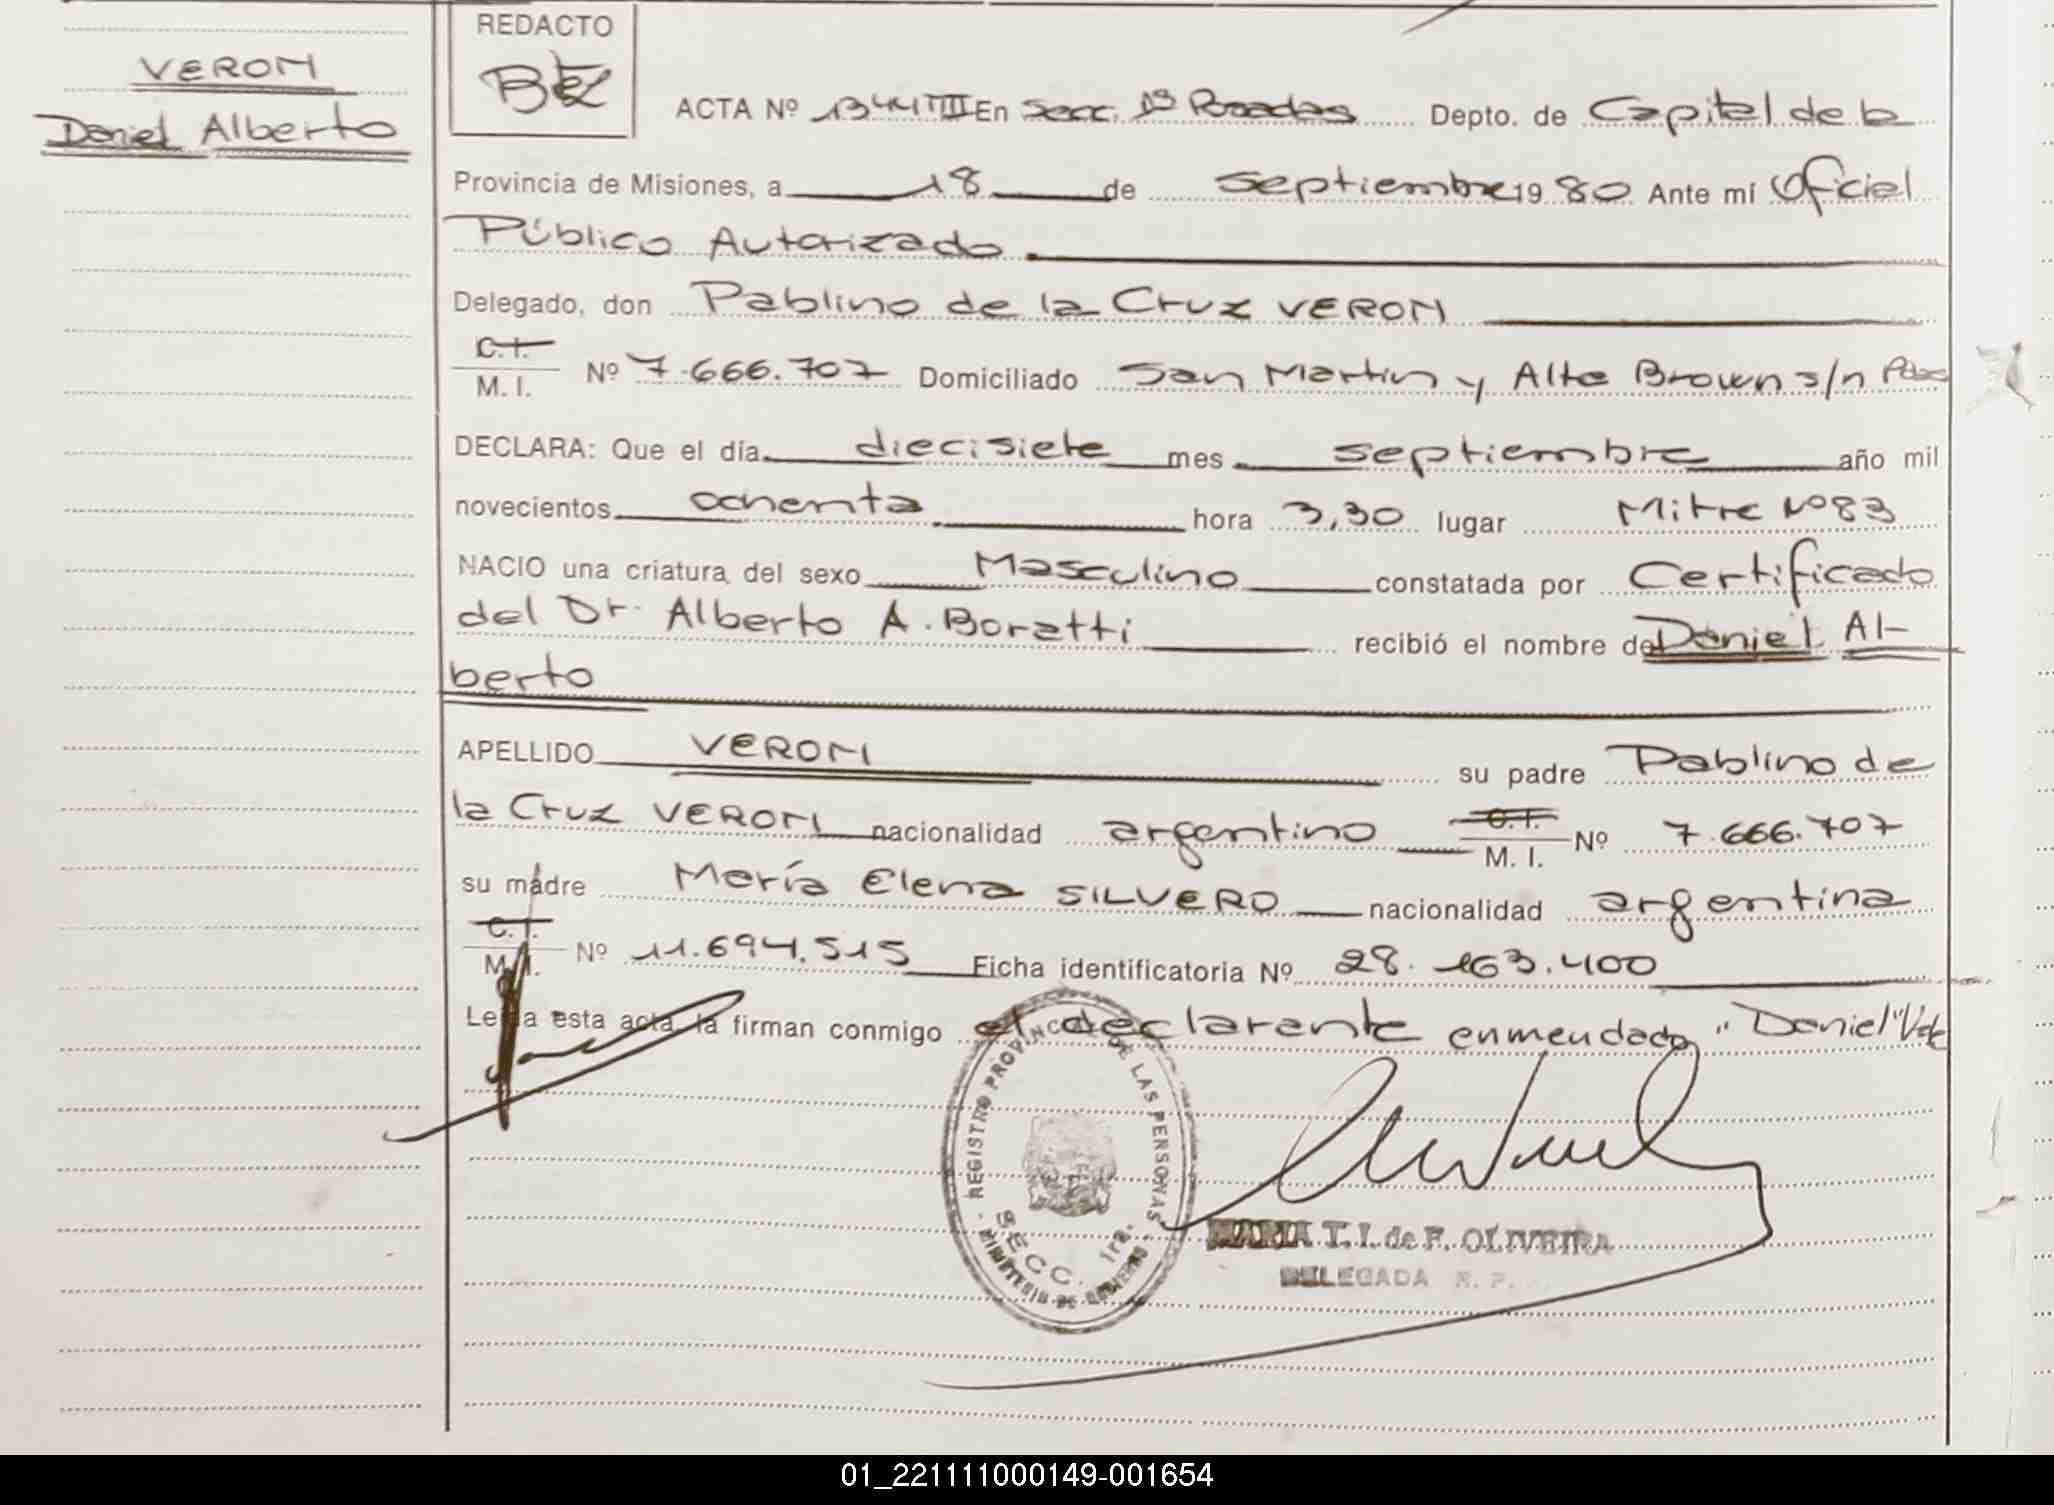 VERON
Daniel Alberto
REDACTO
ACTA Nº 1344 TIII En Secc. 1ª Posadas Depto. de Capital de la
Provincia de Misiones, a 18 de septiembre 19 80 Ante mí Oficial
Público Autorizado
Delegado, don Pablino de la Cruz VERON
C.I.
M. I. Nº 7.666.707 Domiciliado San Martin y Alte Brown s/n Pdas
DECLARA: Que el día diecisiete mes septiembre año mil
novecientos ochenta hora 3,30 lugar Mitre Nº 83
NACIO una criatura del sexo Masculino constatada por Certificado
del Dr. Alberto A. Boratti recibió el nombre de Daniel Al-
berto
APELLIDO VERON su padre Pablino de
la Cruz VERON nacionalidad argentino C.I. M. I. Nº 7.666.707
su madre María Elena SILVERO nacionalidad argentina
C.I.
M.I. Nº 11.694.515 Ficha identificatoria Nº 28.163.400
Leída esta acta, la firman conmigo el declarante enmendado "Daniel" Vale
REGISTRO PROVINCIAL DE LAS PERSONAS
SECC. 1ra.
MINISTERIO DE GOBIERNO
MARIA T. I. de F. OLIVEIRA
DELEGADA R. P.
01_221111000149-001654